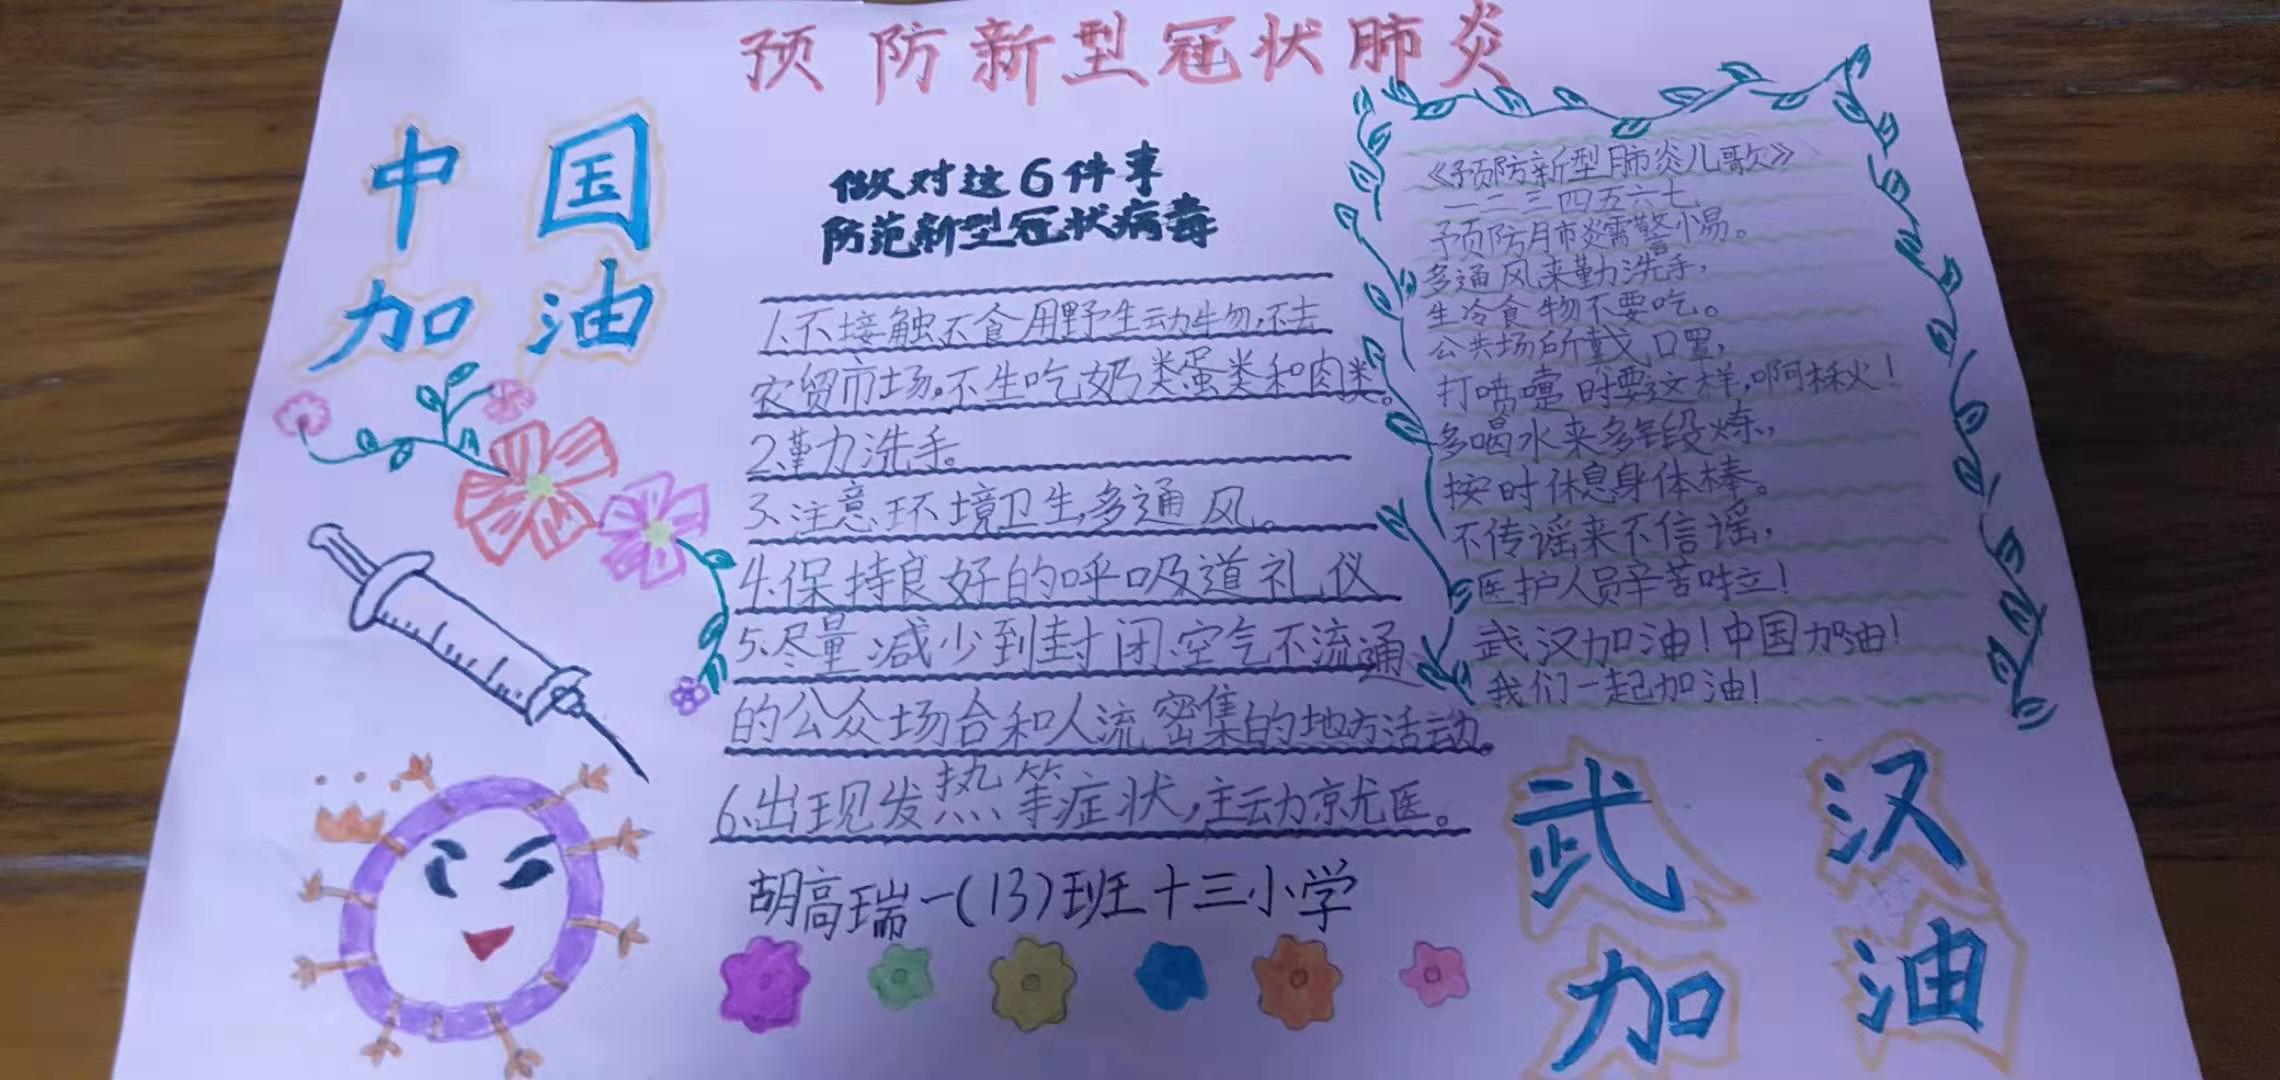 预防新型冠状肺炎
中国
加油
做对这6件事
防范新型冠状病毒
1.不接触,不食用野生动物,不去
农贸市场。不生吃奶类蛋类和肉类。
2.勤洗手。
3.注意环境卫生,多通风。
4.保持良好的呼吸道礼仪
5.尽量减少到封闭、空气不流通
的公众场合和人流密集的地方活动。
6.出现发热等症状,主动就医。
胡高瑞一(13)班十三小学
《预防新型肺炎儿歌》
一二三四五六七,
预防肺炎需警惕。
多通风来勤洗手,
生冷食物不要吃。
公共场所戴口罩,
打喷嚏时要这样,啊秋!
多喝水来多段炼,
按时休息身体棒。
不传谣来不信谣,
医护人员辛苦啦!
武汉加油!中国加油!
我们一起加油!
武汉
加油